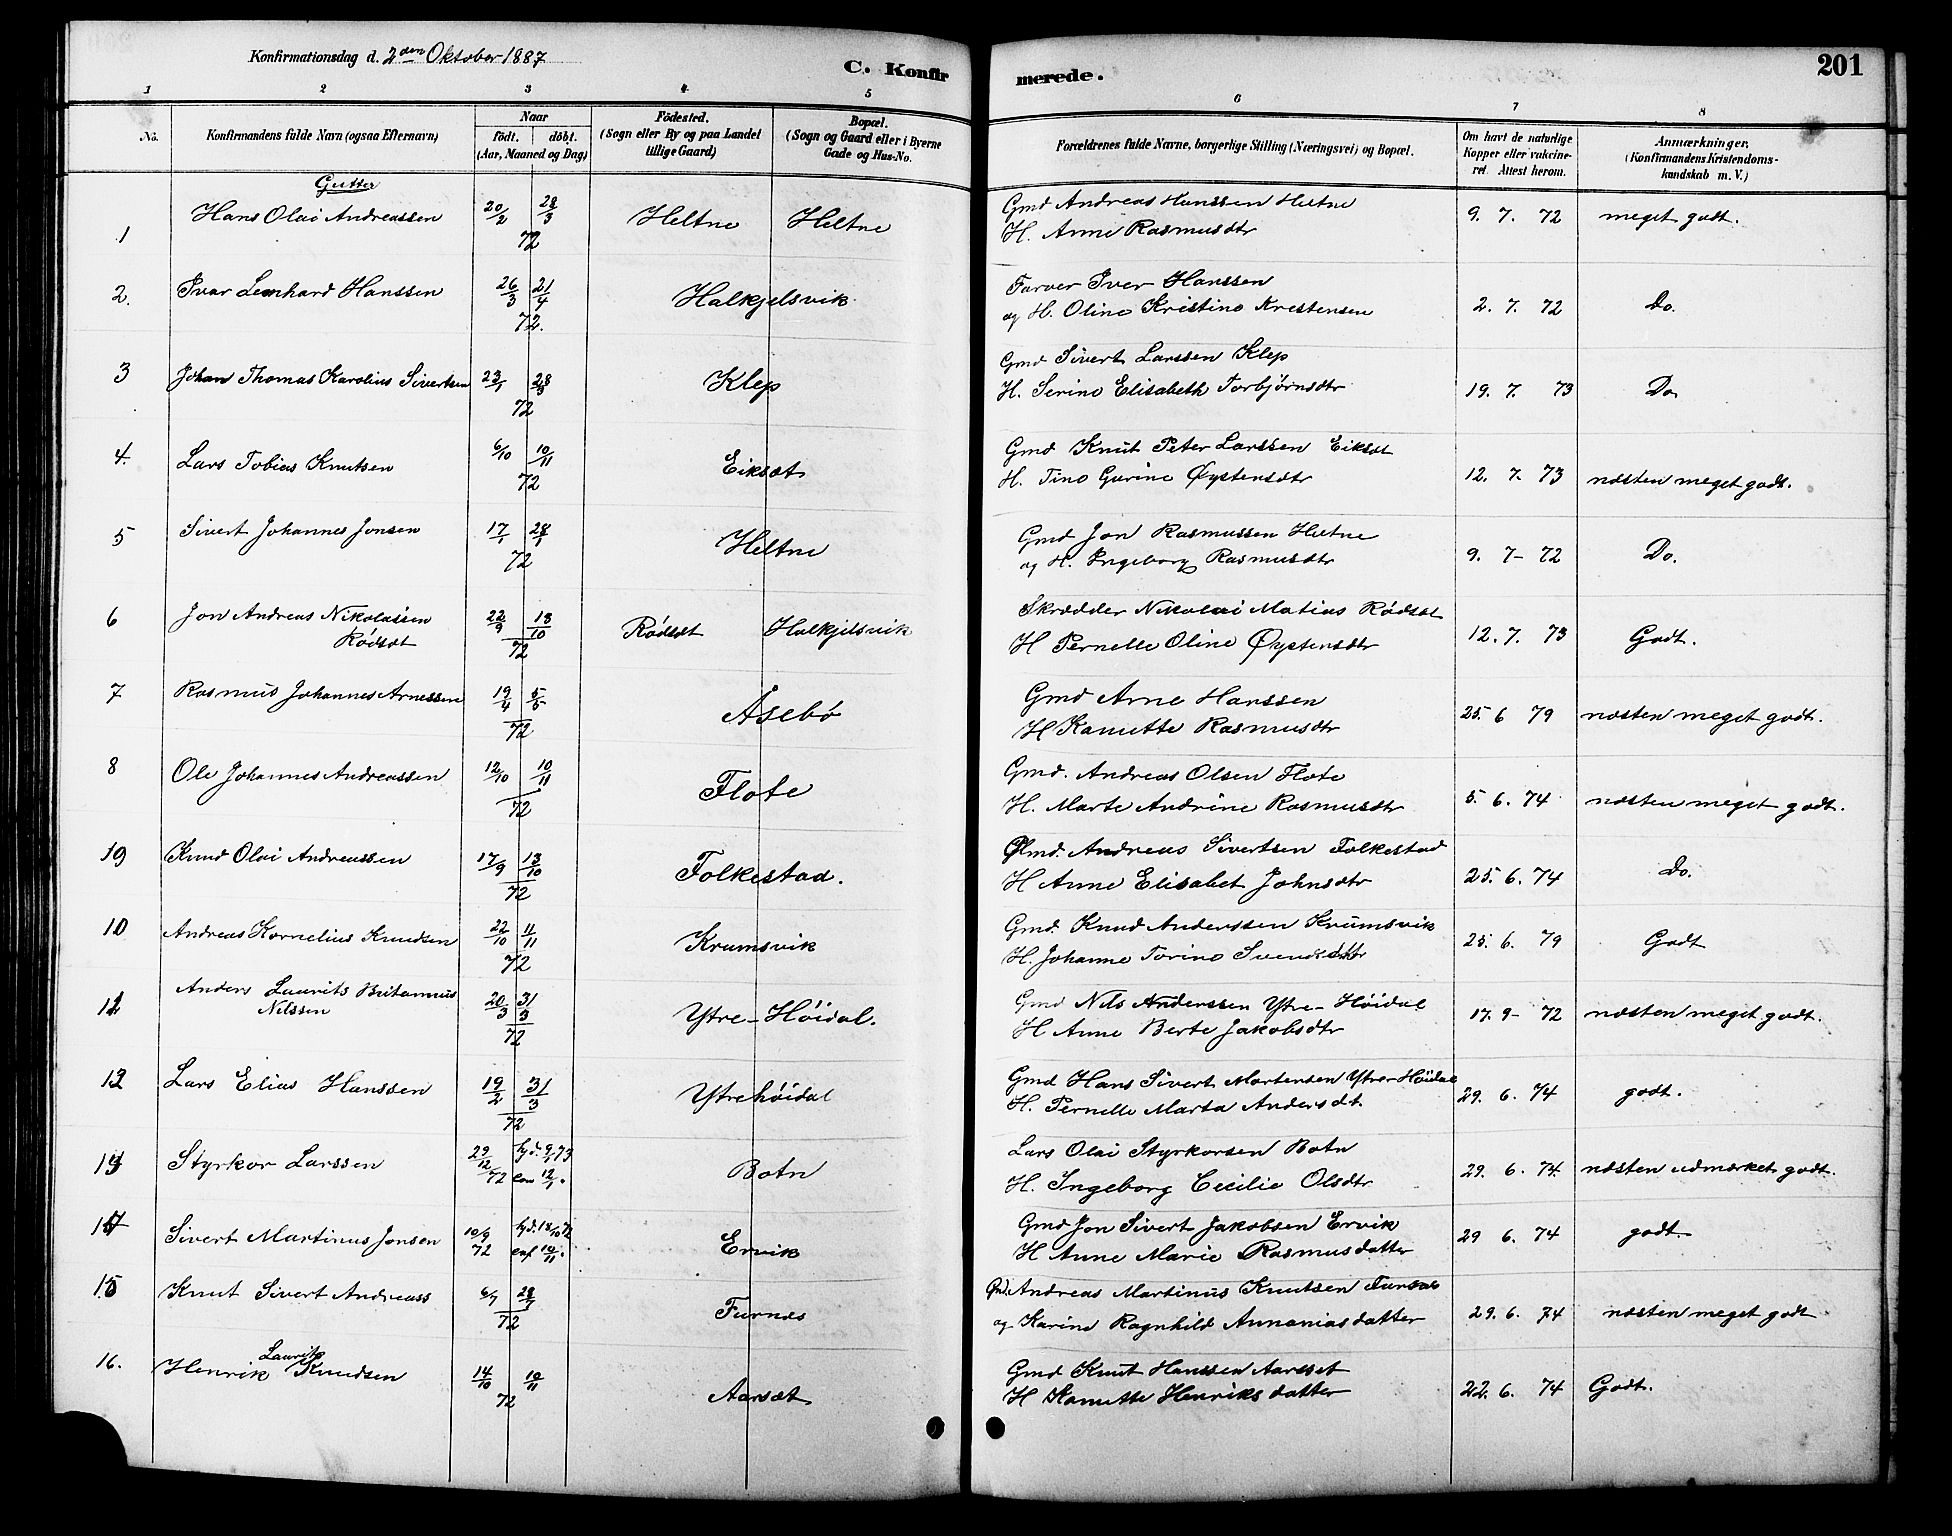 Konfirmationsdag d. 2den Oktober 1887
C. Konfirmerede.
201
1 2 3 4 5 6 7 8
No.
Konfirmandens fulde Navn (ogsaa Efternavn)
Naar
födt. döbt.
(Aar, Maaned og Dag)
Födested.
(Sogn eller By og paa Landet
tillige Gaard)
Bopæl.
(Sogn og Gaard eller i Byerne
Gade og Hus-No.
Forældrenes fulde Navne, borgerlige Stilling (Næringsvei) og Bopæl.
Om havt de naturlige
Kopper eller vakcine-
ret. Attest herom.
Anmærkninger.
(Konfirmandens Kristendoms-
kundskab m. V.)
Gutter
1 Hans Olai Andreassen 20/2 28/3 72 Heltne Heltne
Gmd Andreas Hanssen Heltne
H. Anne Rasmusdtr 9. 7. 72 meget godt.
2. Ivar Lenhard Hanssen 26/3 21/4 72. Halkjelsvik
Farver Iver Hanssen
og H. Oline Kristine Kristensen 2. 7. 72 Do.
3 Johan Thomas Karolius Sivertsen 23/1 28/3 72 Klep
Gmd Sivert Larssen Klep
H. Serine Elisabeth Torbjørnsdtr 19. 7. 73 Do
4. Lars Tobias Knutsen 6/10 10/11 72 Eiksæt
Gmd Knut Peter Larssen Eiksæt
H. Tine Gurine Øystensdtr 12. 7. 73 næsten meget godt.
5 Sivert Johannes Jonsen 17/1 28/1 72 Heltne
Gmd Jon Rasmussen Heltne
og H. Ingeborg Rasmusdtr 9. 7- 72 Do.
6 Jon Andreas Nikolaisen
Rødsæt 22/9 13/10 72 Rødsæt Halkjelsvik
Skrædder Nikolai Matias Rødsæt
H Pernelle Oline Øystensdtr 12. 7. 73 Godt.
7 Rasmus Johannes Arnessen 19/4 5/5 72 Åsebø
Gmd Arne Hanssen
H Kanutte Rasmusdtr 25. 6 79 næsten meget godt.
8 Ole Johannes Andreassen 12/10 10/11 72 Flote
Gmd. Andreas Olsen Flote
H. Marte Andrine Rasmusdtr 5. 6. 74 næsten meget godt.
9 Knud Olai Andreassen 17/9 13/10 72 Folkestad.
Andreas Sivertsen Folkestad
H Anne Elisabet Johnsdtr 25. 6. 74 Do.
10 Andreas Kornelius Knudsen 22/10 11/11 72 Krumsvik
Gmd. Knud Anderssen Krumsvik
H. Johanne Torine Svendsdtr 25. 6. 79 Godt
11 Anders Laurits Britannus
Nilssen 20/3 31/3 72 Ytre-Höidal.
Gmd Nils Anderssen Ytre-Höidal
H Anne Berte Jakobsdtr 17. 9- 72 næsten meget godt.
12 Lars Elias Hanssen 19/2 31/3 72 Ytrehöidal
Gmd Hans Sivert Martensen Ytre-Höidal
H. Pernelle Marta Andersdt. 29. 6. 74 godt.
13 Styrkor Larssen 29/12 72 hjd. 9/1 73 12/1. Botn
Lars Olai Styrkorsen Botn
H. Ingeborg Cecilie Olsdtr 29. 6. 74. næsten udmærket godt.
14 Sivert Martinus Jonsen 10/9 72 hjd. 18/10 72 10/11. Ervik
Gmd Jon Sivert Jakobsen Ervik
H Anne Marie Rasmusdatter 29 6. 74 godt.
15 Knut Sivert Andreass 6/7 28/7 72 Furnes
Andreas Martinus Knutsen Furnes
og Karine Ragnhild Annaniasdatter 29. 6. 74 næsten meget godt
16. Henrik Laurits Knudsen 14/10 10/11 72 Aarsæt
Gmd Knut Hanssen Aarsset
H Kanutte Henriksdatter 22. 6. 74 Godt.